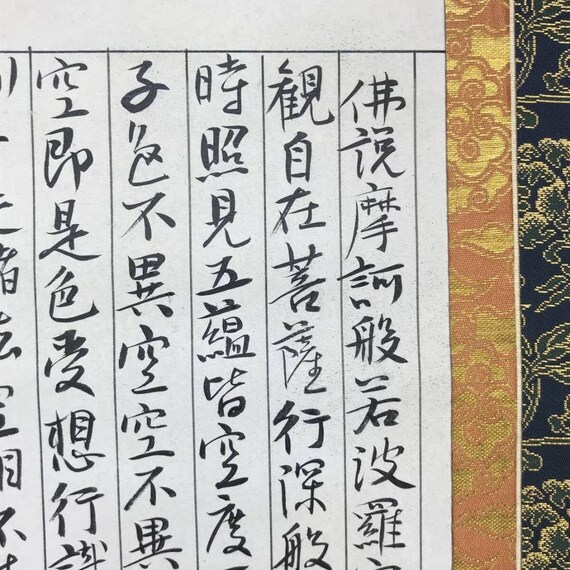 佛説摩訶般若波羅
観自在菩薩行深般
時照見五蘊皆空度
子色不異空空不異
空即是色受想行識
是諸法空相不